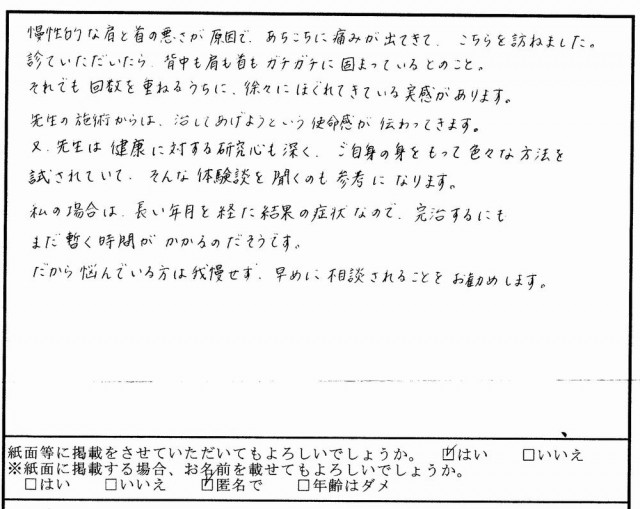 慢性的な肩と首の悪さが原因で、あちこちに痛みが出てきて、こちらを訪ねました。
診ていただいたら、背中も肩も首もガチガチに固まっているとのこと。
それでも回数を重ねるうちに、徐々にほぐれてきている実感があります。
先生の施術からは、治してあげようという使命感が伝わってきます。
又、先生は健康に対する研究心も深く、ご自身の身をもって色々な方法を
試されていて、そんな体験談を聞くのも参考になります。
私の場合は、長い年月を経た結果の症状なので、完治するにも
まだ暫く時間がかかるのだそうです。
だから悩んでいる方は我慢せず、早めに相談されることをお勧めします。
紙面等に掲載をさせていただいてもよろしいでしょうか。 ☑はい □いいえ
※紙面に掲載する場合、お名前を載せてもよろしいでしょうか。
□はい □いいえ ☑匿名で □年齢はダメ